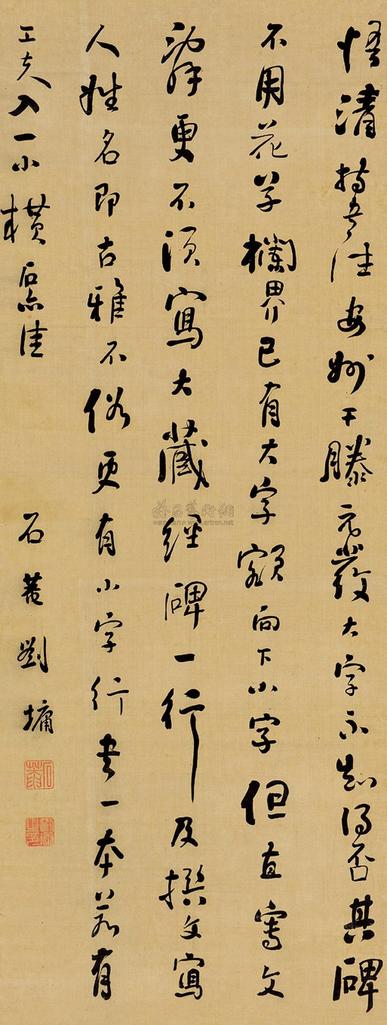 悟清持書往安州干滕元發大字不知得否其碑
不用花草欄界已有大字額向下小字但直寫文
辭更不須寫大藏經碑一行及撰文寫
人姓名即古雅不俗更有小字行書一本若有
工夫入一小橫石亦佳
石菴劉墉
石菴